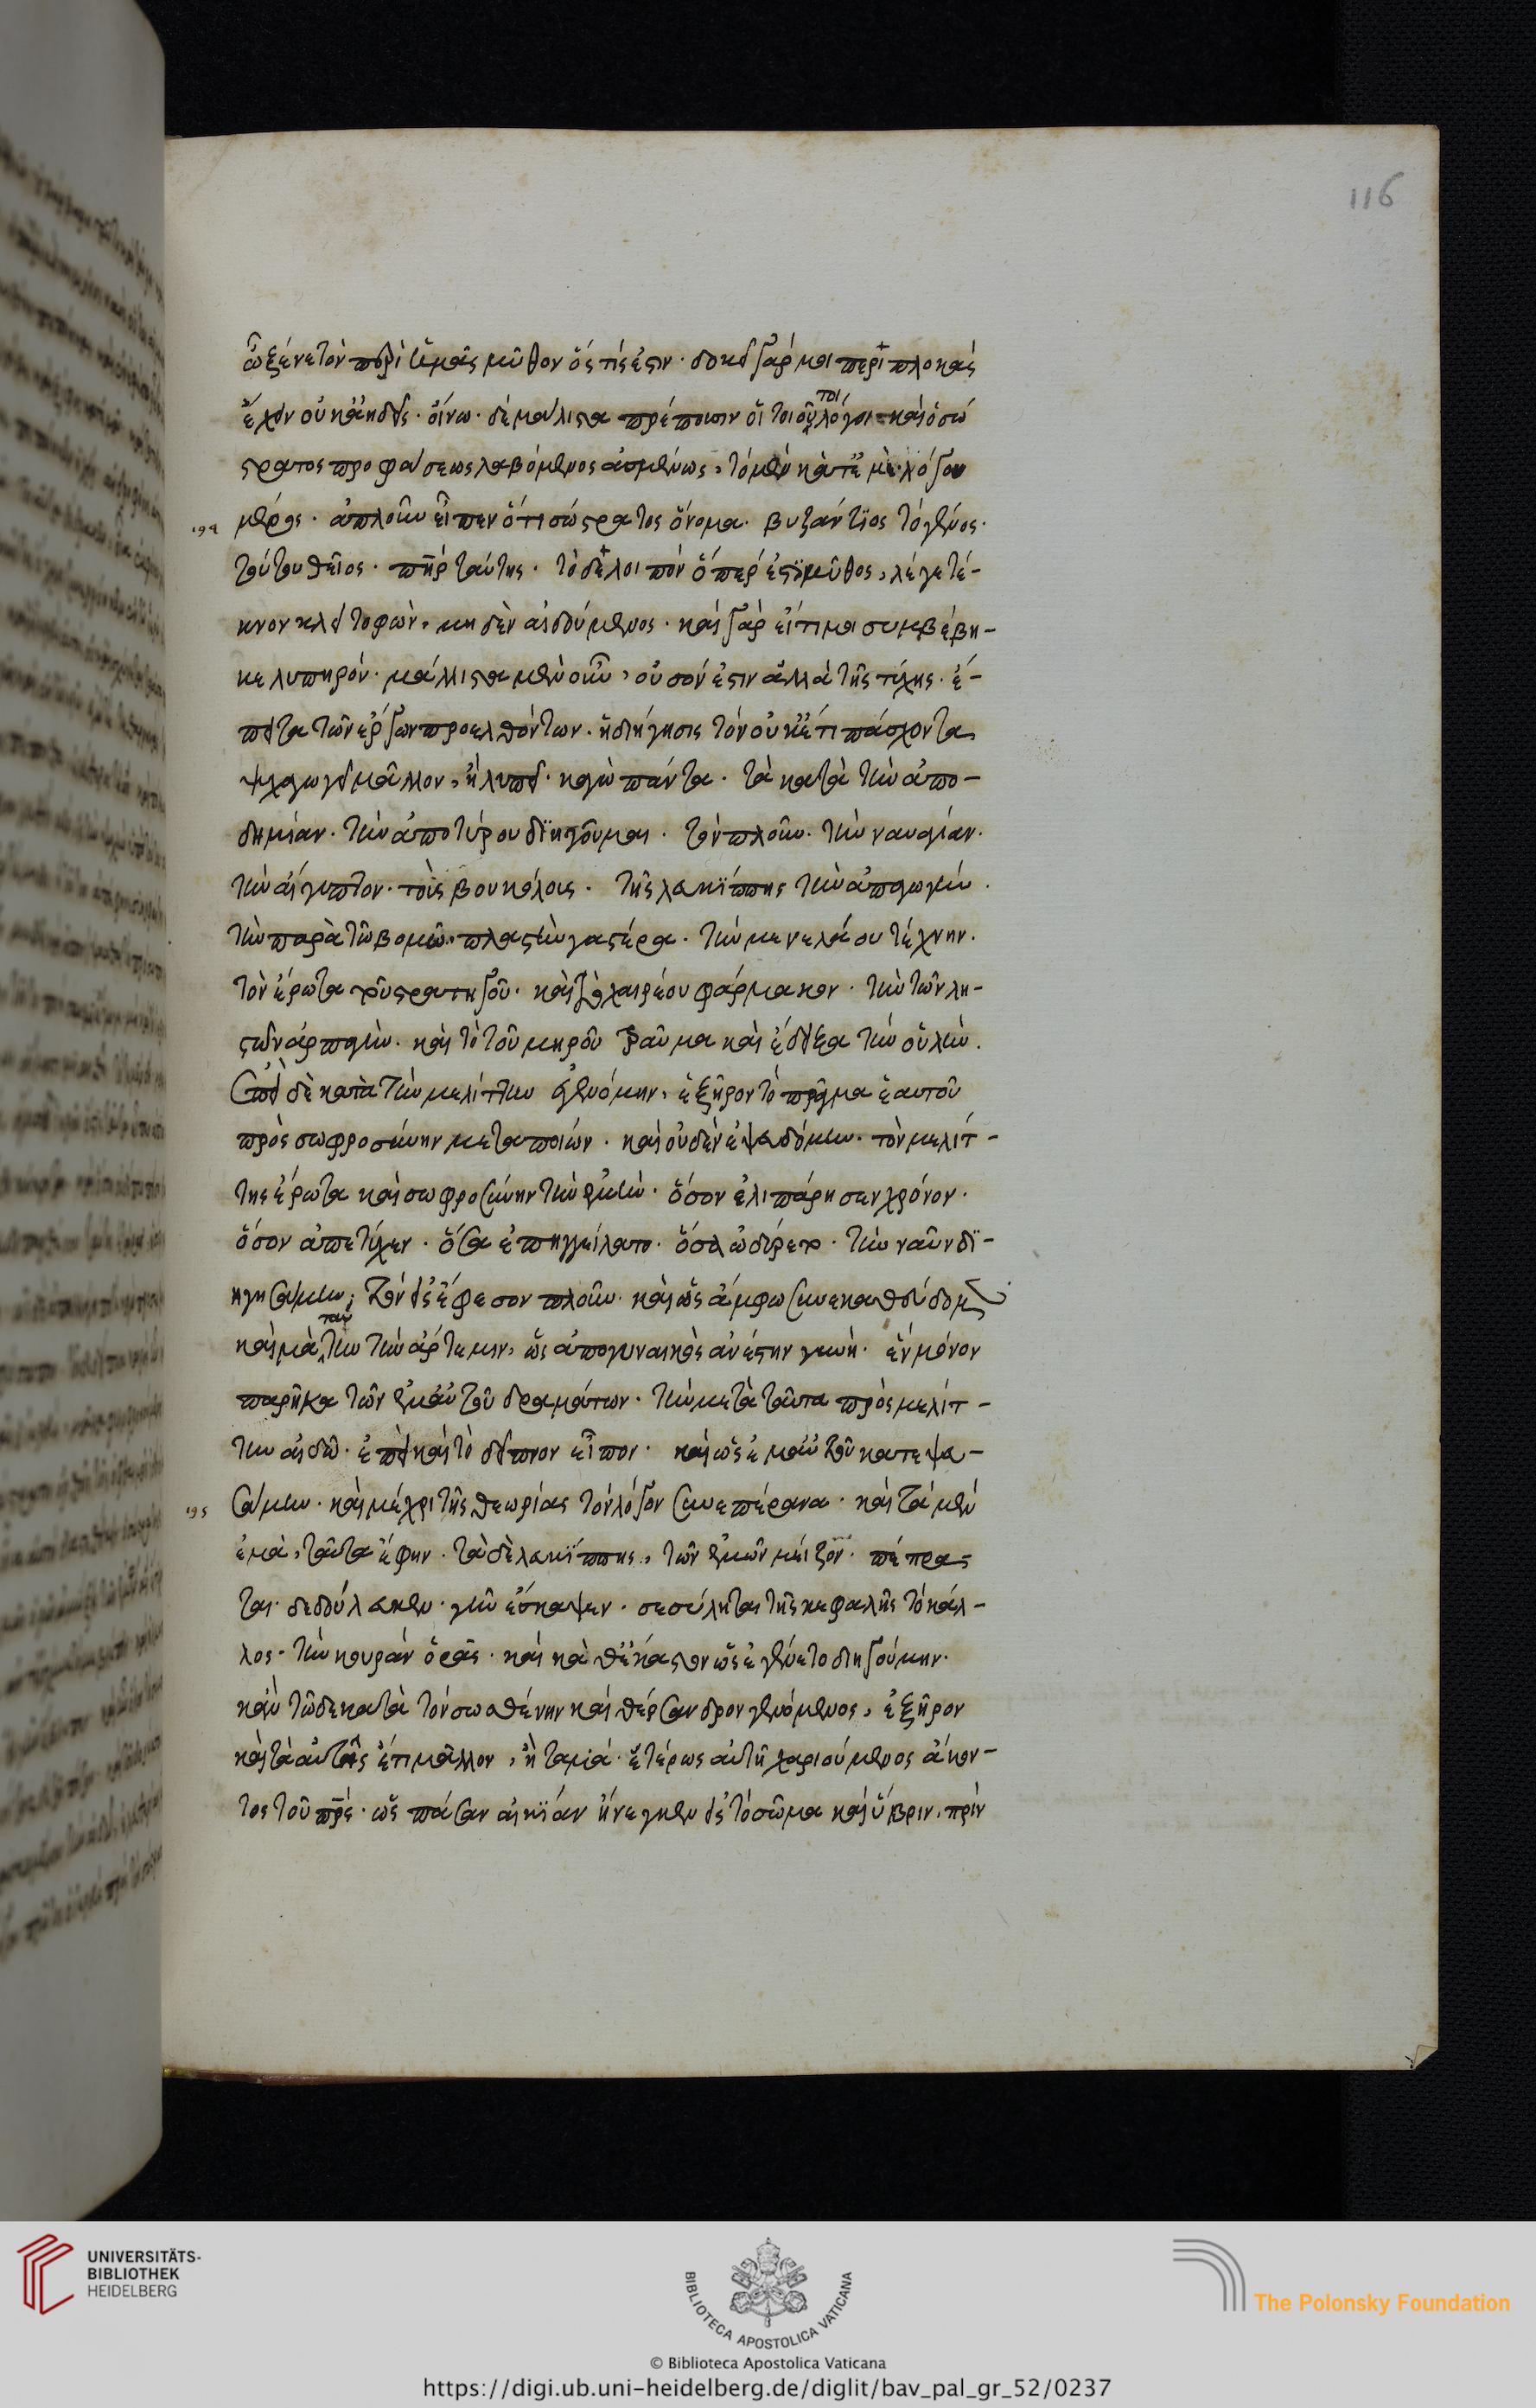 116
ὦ ξένε τὸν περὶ ὑμᾶς μῦθον ὅς τίς ἐστιν· δοκεῖ γάρ μοι περιπλοκάς
ἔχειν οὐκ ἀηδεῖς· οἴνω· δὲ μάλιστα πρέπουσιν οἱ τοιοῦτοι λόγοι καὶ ὁ σώ
στρατος προφάσεως λαβόμενος ἀσμένως, τὸ μὲν κατ' ἐμὲ λόγου
194 μέρος· ἁπλοῦν εἶπεν ὅτι σώστρατος ὄνομα· βυζάντιος τὸ γένος·
τούτου θεῖος· πὴρ ταύτης· τὸ δὲ λοιπὸν ὅπέρ ἐστι μῦθος, λέγε τέ-
κνον κλειτοφῶν, μηδὲν αἰδούμενος· καὶ γὰρ εἴ τι μοι συμβέβη-
κε λυπηρόν· μάλλιστα μὲν οὖν, οὐ σόν ἐστιν ἀλλὰ τῆς τύχης· ἔ-
πειτα τῶν ἔργων προελθόντων· ἡ διήγησις τὸν οὐκ ἔτι πάσχοντα,
ψυχαγωγεῖ μᾶλλον, ἢ λυπεῖ· κἀγὼ πάντα· τὰ κατὰ τὴν ἀπο-
δημίαν· τὴν ἀπὸ τύρου διηγοῦμαι· τὸν πλοῦν· τὴν ναυαγίαν·
τὴν αἴγυπτον· τοὺς βουκόλους· τῆς λευκίππης τὴν ἀπαγωγήν·
τὴν παρὰ τῶ βομῶ· πλαστὴν γαστέρα· τὴν μενελάου τέχνην·
τὸν ἔρωτα τοῦ στρατηγοῦ· καὶ τὸ χαιρέου φάρμακον· τὴν τῶν λη-
στῶν ἁρπαγήν· καὶ τὸ τοῦ μηροῦ τραῦμα καὶ ἔδειξα τὴν οὐλήν·
ἐπεὶ δὲ κατὰ τὴν μελίττην ἐγενόμην, ἐξῆρον τὸ πρᾶγμα ἑαυτοῦ
πρὸς σωφροσύνην μεταποιῶν· καὶ οὐδὲν ἐψευδόμην· τὸν μελίτ-
της ἔρωτα καὶ σωφροσύνην τὴν ἐμήν· ὅσον ἐλιπάρησεν χρόνον·
ὅσον ἀπέτυχεν· ὅσα ἐπηγγείλατο· ὅσα ὠδύρετο· τὴν ναῦν δι-
ηγησάμην; τὸν εἰς ἔφεσον πλοῦν· καὶ ὡς ἄμφω συνεκαθεύδομεν
καὶ μὰ ταύτην τὴν ἄρτεμιν, ὡς ἀπὸ γυναικὸς ἀνέστην γυνή· ἓν μόνον
παρῆκα τῶν ἐμαυτοῦ δραμάτων· τὴν μετὰ ταῦτα πρὸς μελίτ-
την αἰδῶ· ἐπεὶ καὶ τὸ δεῖπνον εἶπον· καὶ ὡς ἐμαυτοῦ κατεψευ-
195 σάμην· καὶ μέχρι τῆς θεωρίας τὸν λόγον συνεπέρανα· καὶ τὰ μὲν
ἐμὰ, ταῦτα ἔφην· τὰ δὲ λευκίππης, τῶν ἐμῶν μείζον· πέπρα-
ται· δεδούλευκεν· γῆν ἔσκαψεν· σεσύληται τῆς κεφαλῆς τὸ κάλ-
λος· τὴν κουρὰν ὁρᾷς· καὶ καθ' ἕκαστον ὡς ἐγένετο διηγούμην·
κἀν τῶδε κατὰ τὸν σωσθένην καὶ θέρσανδρον γενόμενος, ἐξῆρον
καὶ τὰ αὐτῆς ἔτι μᾶλλον, ἢ ταμὰ· ἑτέρως αὐτῆ χαριούμενος ἀκού-
τος τοῦ πρς· ὡς πᾶσαν αἰκίαν ἤνεγκεν εἰς τὸ σῶμα καὶ ὕβριν, πρὶν
UNIVERSITÄTS-
BIBLIOTHEK
HEIDELBERG
BIBLIOTECA APOSTOLICA VATICANA
© Biblioteca Apostolica Vaticana
The Polonsky Foundation
https://digi.ub.uni-heidelberg.de/diglit/bav_pal_gr_52/0237